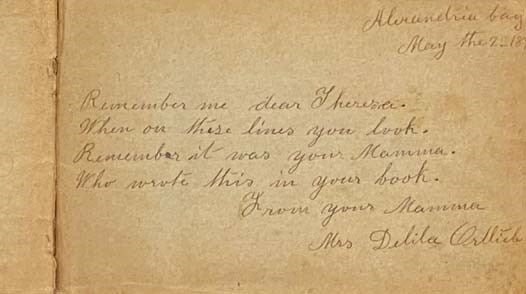 Alexandria bay
May the 2 - 18
Remember me dear Theresa.
When on these lines you look.
Remember it was your Mamma.
Who wrote this in your book.
From your Mamma
Mrs Delila Ortlieb